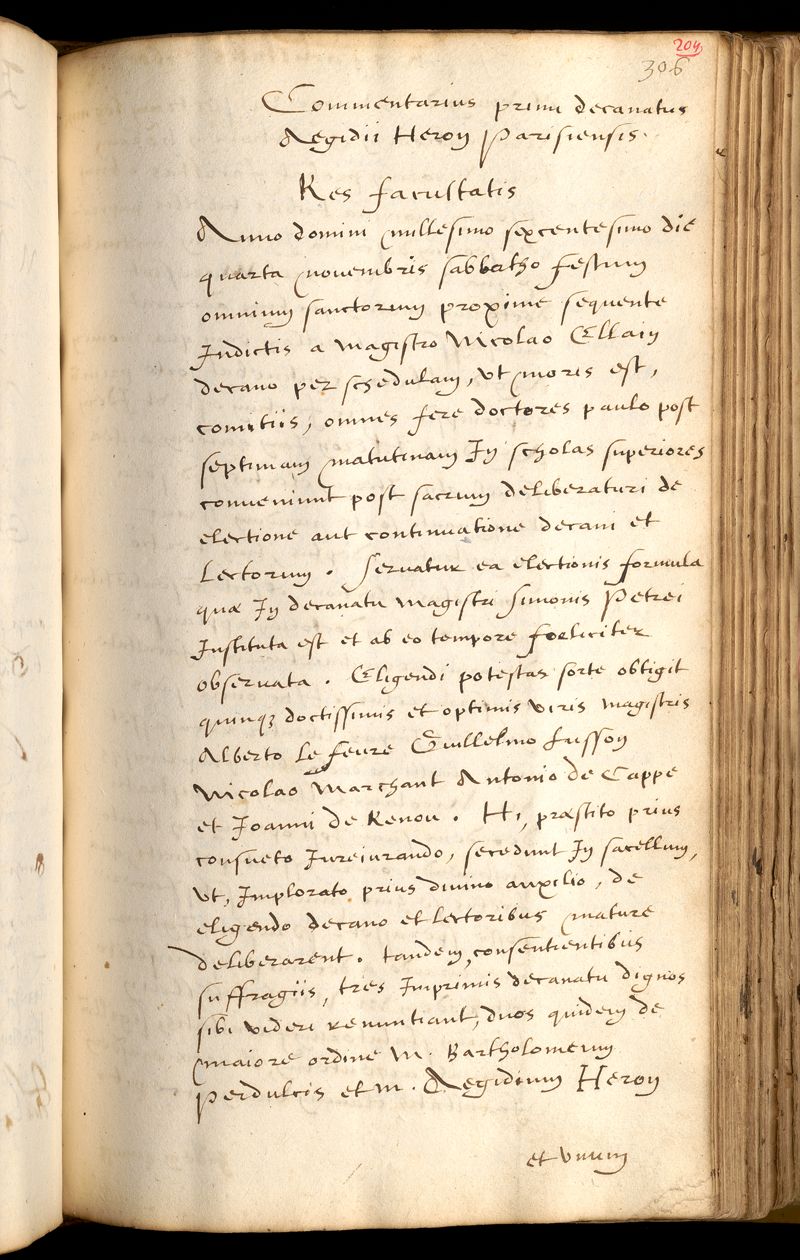 204
306
Commentarius primi decanatus
Aegidii Heron Parisiensis.
Res facultatis
Anno domini millesimo sexcentesimo die
quarta novembris sabbatho festum
omnium sanctorum proxime sequente
Indictis a magistro Nicolao Ellain
decano per schedulam, ut moris est,
comitiis, omnes fere doctores paulo post
septimam matutinam In scholas superiores
conveniunt post sacrum deliberaturi de
electione aut continuatione decani et
Lectorum. Servatur ea electionis formula
quæ In decanatu magistri Simonis Petrei
Instituta est et ab eo tempore foeliciter
observata. Eligendi potestas sorte obtigit
quinq; doctissimis et optimis viris magistris
Alberto Le fevre Guillelmo Lusson
Nicolao Marchant Antonio de Cappe
et Joanni de Renou. Hi, præstito prius
consueto Jurejurando, secedunt In sacellum,
Ut, Implorato prius divino auxilio, de
eligendo decano et lectoribus mature
deliberarent. tandem, consentientibus
suffragiis, tres Imprimis decanatu dignos
sibi videri renuntiant, duos quidem de
maiore ordine M. Bartholomeum
Perdulcis et M. Aegidium Heron
et unum